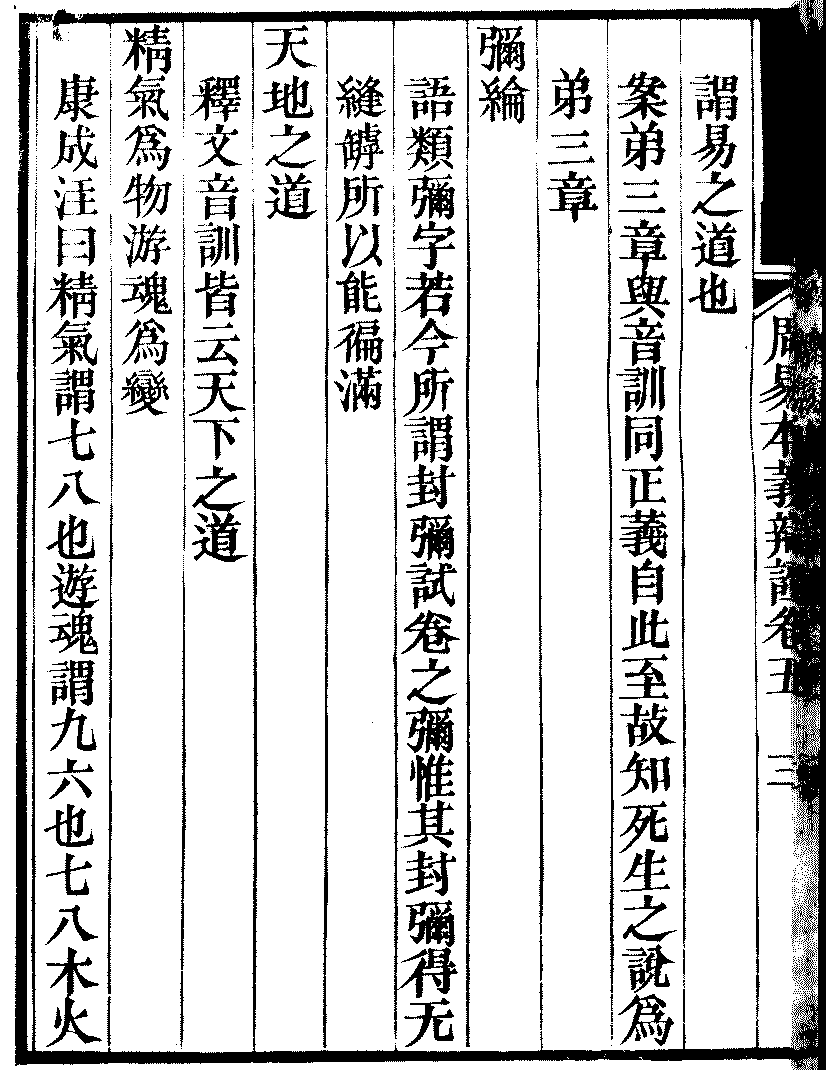 謂易之道也
案弟三章與音訓同正義自此至故知死生之說爲
弟三章
彌綸
語類彌字若今所謂封彌試卷之彌惟其封彌得无
縫罅所以能徧滿
天地之道
釋文音訓皆云天下之道
精氣爲物游魂爲變
康成注曰精氣謂七八也遊魂謂九六也七八木火
周易本義辨證卷五 三